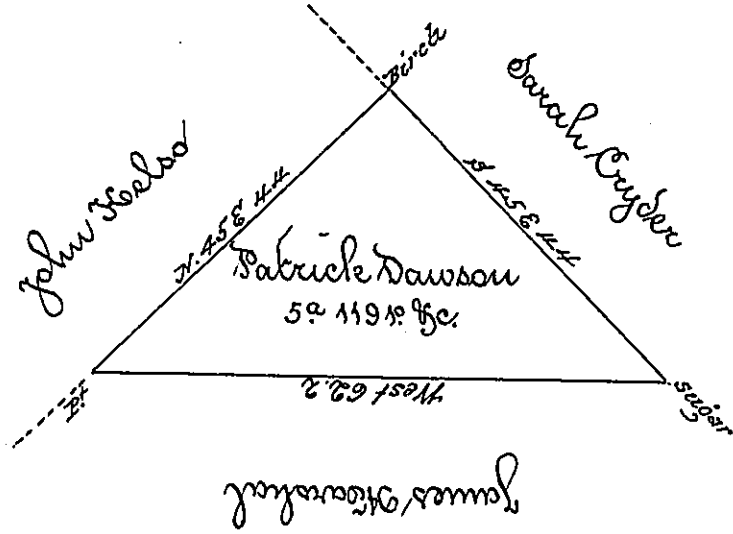 Birch
John Kelso
Sarah Cryder
N. 45 E 44
S 45 E 44
Patrick Dawson
5a 119p &c.
Pit
West 62.2
sugar
James Marshal